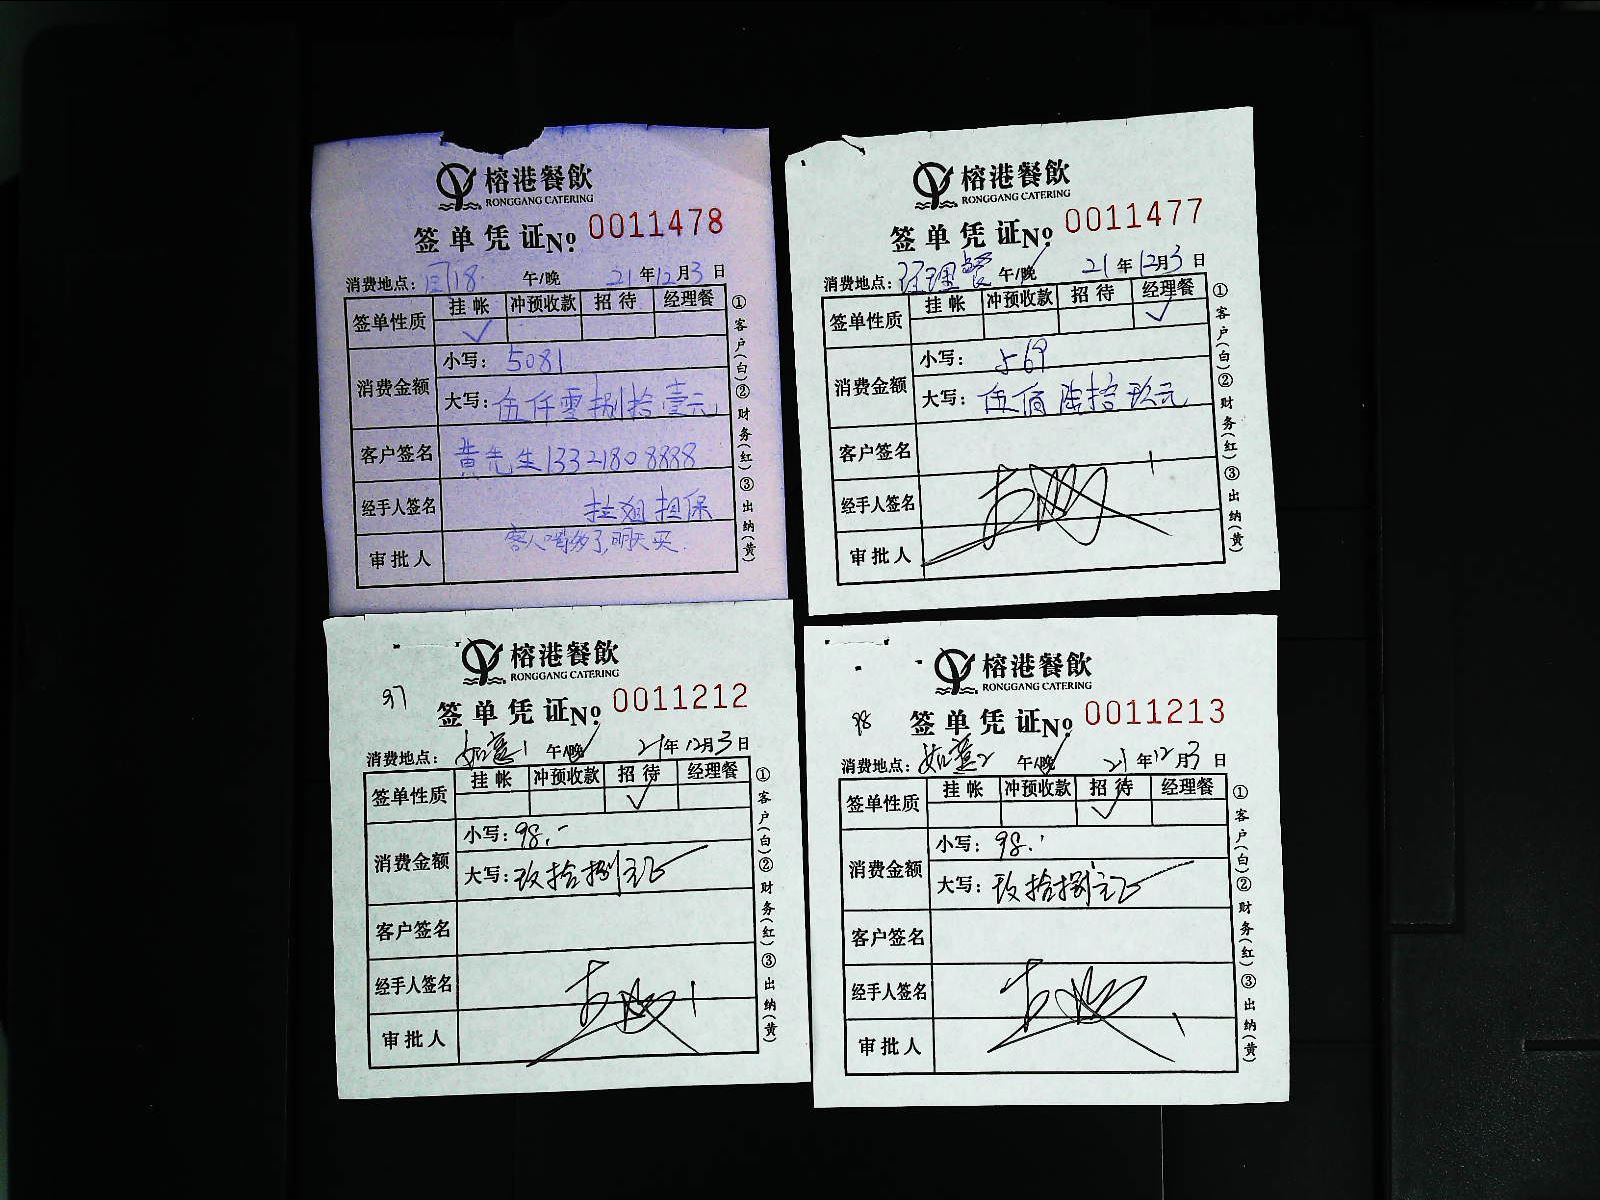 榕港餐飲
RONGGANG CATERING
签单凭证No. 0011478
消费地点: 718 午/晚 21年12月3日
签单性质 挂帐 冲预收款 招待 经理餐
✓
消费金额 小写: 5081
大写: 伍仟零捌拾壹元
客户签名 黄先生13321808888
经手人签名 拉姐担保
客人喝多了,明天买.
审批人
①客户(白)②财务(红)③出纳(黄)
榕港餐飲
RONGGANG CATERING
签单凭证No. 0011477
消费地点: 经理餐 午/晚 21年12月3日
签单性质 挂帐 冲预收款 招待 经理餐
✓
消费金额 小写: 569
大写: 伍佰陆拾玖元
客户签名
经手人签名
审批人
①客户(白)②财务(红)③出纳(黄)
榕港餐飲
RONGGANG CATERING
97 签单凭证No. 0011212
消费地点: 如意1 午/晚 21年12月3日
签单性质 挂帐 冲预收款 招待 经理餐
✓
消费金额 小写: 98.-
大写: 玖拾捌元正
客户签名
经手人签名
审批人
①客户(白)②财务(红)③出纳(黄)
榕港餐飲
RONGGANG CATERING
98 签单凭证No. 0011213
消费地点: 如意2 午/晚 21年12月3日
签单性质 挂帐 冲预收款 招待 经理餐
✓
消费金额 小写: 98.-
大写: 玖拾捌元正
客户签名
经手人签名
审批人
①客户(白)②财务(红)③出纳(黄)